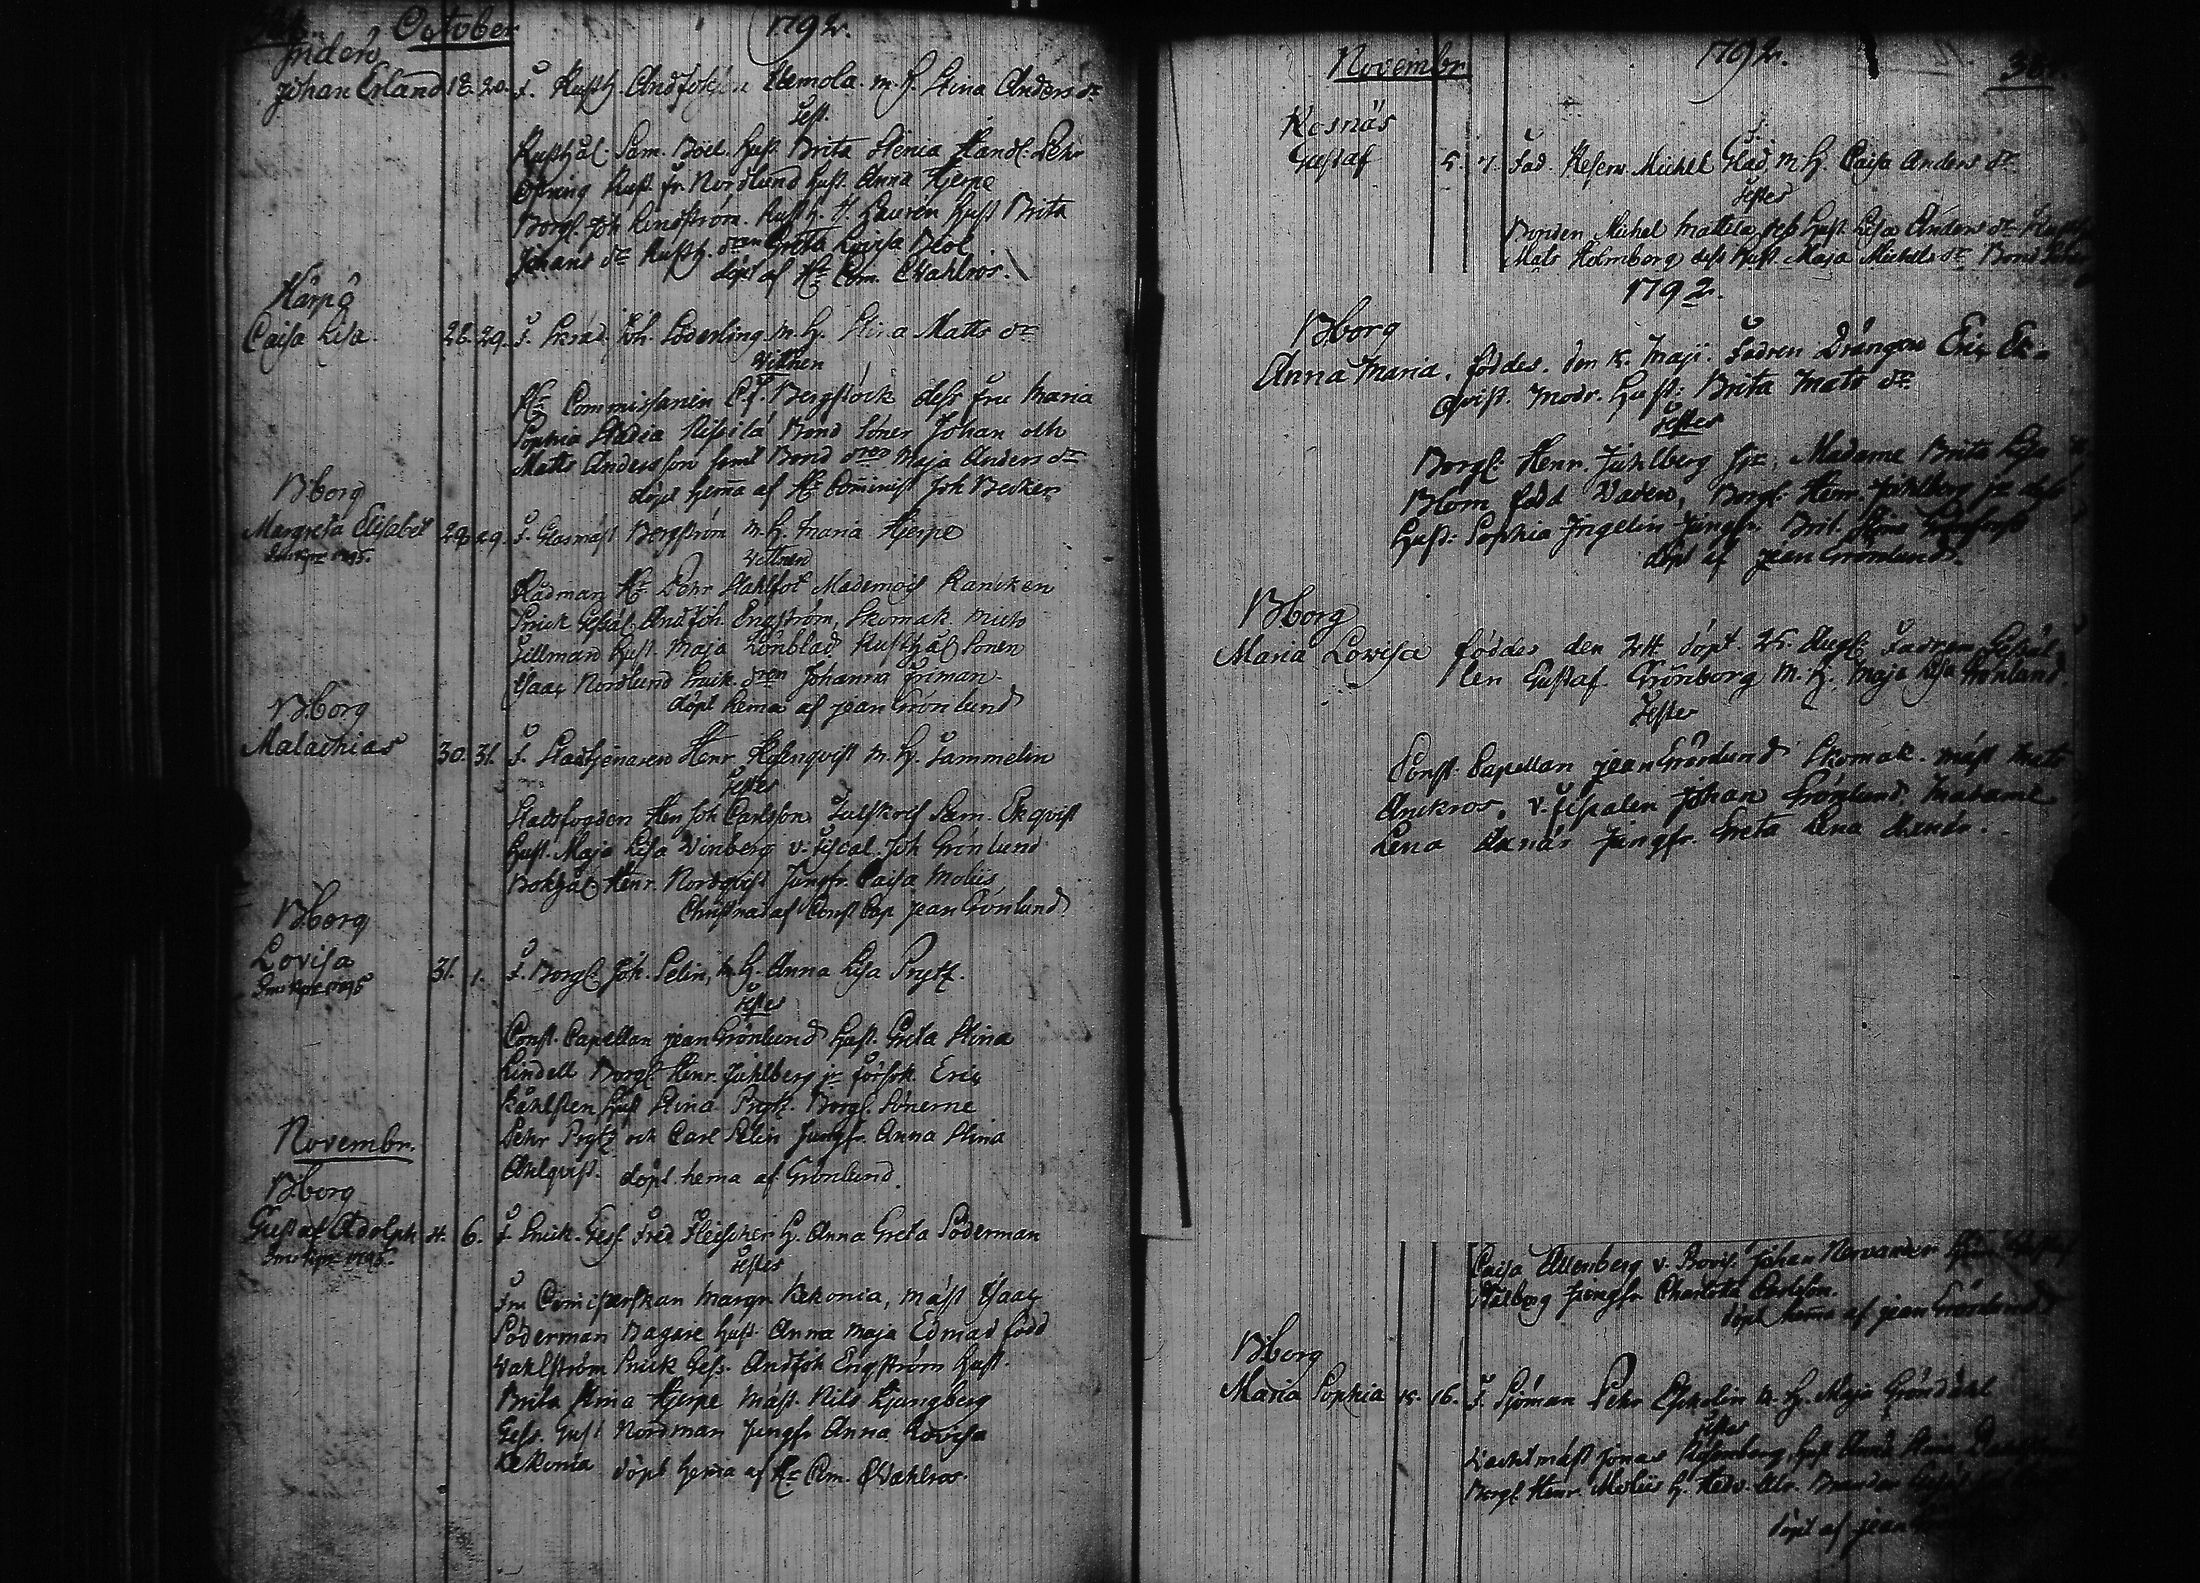 October 1792.
Inderö
Johan Erland 18. 20. F. Rusth. And Joh: Hemola. m. h. Stina Anders dr
Test.
Rusth. Sam. Böel. hust. Brita Stenia Handl. Pehr
Öfning Rust. Fr. Nordlund hust. Anna Hjerpe
Borgl. Joh Lindström. Rusth. J. Hauren hust Brita
Johans dr Rusth. dren Greta Lovisa Böel
döpt af Hr Com. Wahlros.
Härpö
Caisa Lisa. 28. 29. F. Skräd. Joh. Söderling m. h. Stina Matts dr
Vittnen
Hr Commissarien C. F. Bergstöck dess fru Maria
Sophia Stadia Bond Söner Johan och
Matts Andersson samt Bond dren Maja Anders dr
döpt hema af Hr Cominist Joh Becker
Bborg
Margreta Elisabet 28. 29. F. Glasmäst Bergström m. h. Maria Hjerpe
Vittnen
Rådman Hr Pehr Stahlfot Mademois Raniken
Snick Gesäl And Joh. Engström, Skomak. Mich
Gillman hust. Maja Lönblad Rusthål Sonen
Isaac Nordlund Snick. dren Johanna Friman
döpt hema af Jean Grönlund
Bborg
Malachias 30. 31. F. Stadtjenaren Henr. Rosenqvist m. h. Sammelin
Testes
Stadsfogden Hen Joh Carlsson, Tulskrif Sam. Ekqvist
hust. Maja Lisa Vinberg v. Fiscal. Joh Grönlund
Bokhål Henr. Nordqvist Jungfr. Caisa Moliis
Christnad af Const Cap Jean Grönlund
Bborg
Lovisa 31. 1. F. Borgl. Joh. Selin, m. h. Anna Lisa Prytz.
Testes
Const. Capellan Jean Grönlund hust. Greta Stina
Lindell Borgl Henr. Juhlberg jr Eric
Kåhlsten hust Stina Prytz. Borgl. Sönerne
Pehr Prytz och Carl Selin Jungfr. Anna Stina
Ahlqvist. döpt hema af Grönlund.
Novembr.
Bborg
Gustaf Adolph 4. 6. F. Snick. Gess Fred Fleischer h. Anna Greta Söderman
Testes
Fru Comisarskan Margr. Kekonia, Mäst Isaac
Söderman Bagare hust. Anna Maja Edmad född
Wahlström Snick Gess. And Joh Engström hust.
Brita Stina Hjerpe Mäst. Nils Ljungberg
Gess. Gust Nordman Jungfr Anna Lovisa
Kekonia döpt hema af Hr Com. Wahlros.
Novembr 1792.
Kosnäs
Gustaf 5. 7. Fad. Reserv. Michel Glad m. h. Caisa Anders dr
Testes
Bonden Michel Mattila hust. Lisa Anders dr
Mats Holmborg dess hust Maja Michels dr Bond
1792.
Bborg
Anna Maria. föddes. den Maji. Fadren Drängen Eric Ek-
qvist. Modr. hust: Brita Mats dr
Testes
Borgl: Henr. Juhlberg Sr, Madame Brita Lisa
Blom född Vaden, Borgl. Henr. Juhlberg jr dess
hust: Sophia Ingelin Jungfr. Brit. Stina
döpt af Jean Grönlund.
Bborg
Maria Lovisa föddes den 24 döpt. 25. Aug. Fadren Gesäl-
len Gustaf Grönborg M. h. Maja Lisa Grönlund.
Testes
Const. Capellan Jean Grönlund Skomak. mäst Mats
Anikros, v. Fiskalen Johan Grönlund, Madame
Lena Jungfr. Greta Lena
Caisa Allenberg v. Johan Nervander
Stålberg Jungfr Charlotta Carlsson.
döpt hema af Jean Grönlund
Bborg
Maria Sophia 15. 16. F. Sjöman Pehr Eskolin m. h. Maja Gröndahl
Testes
Vachtmäst Jonas Rosenberg, hust Stina
Borgl. Henr. Moliis h. Hedv.
döpt af Jean